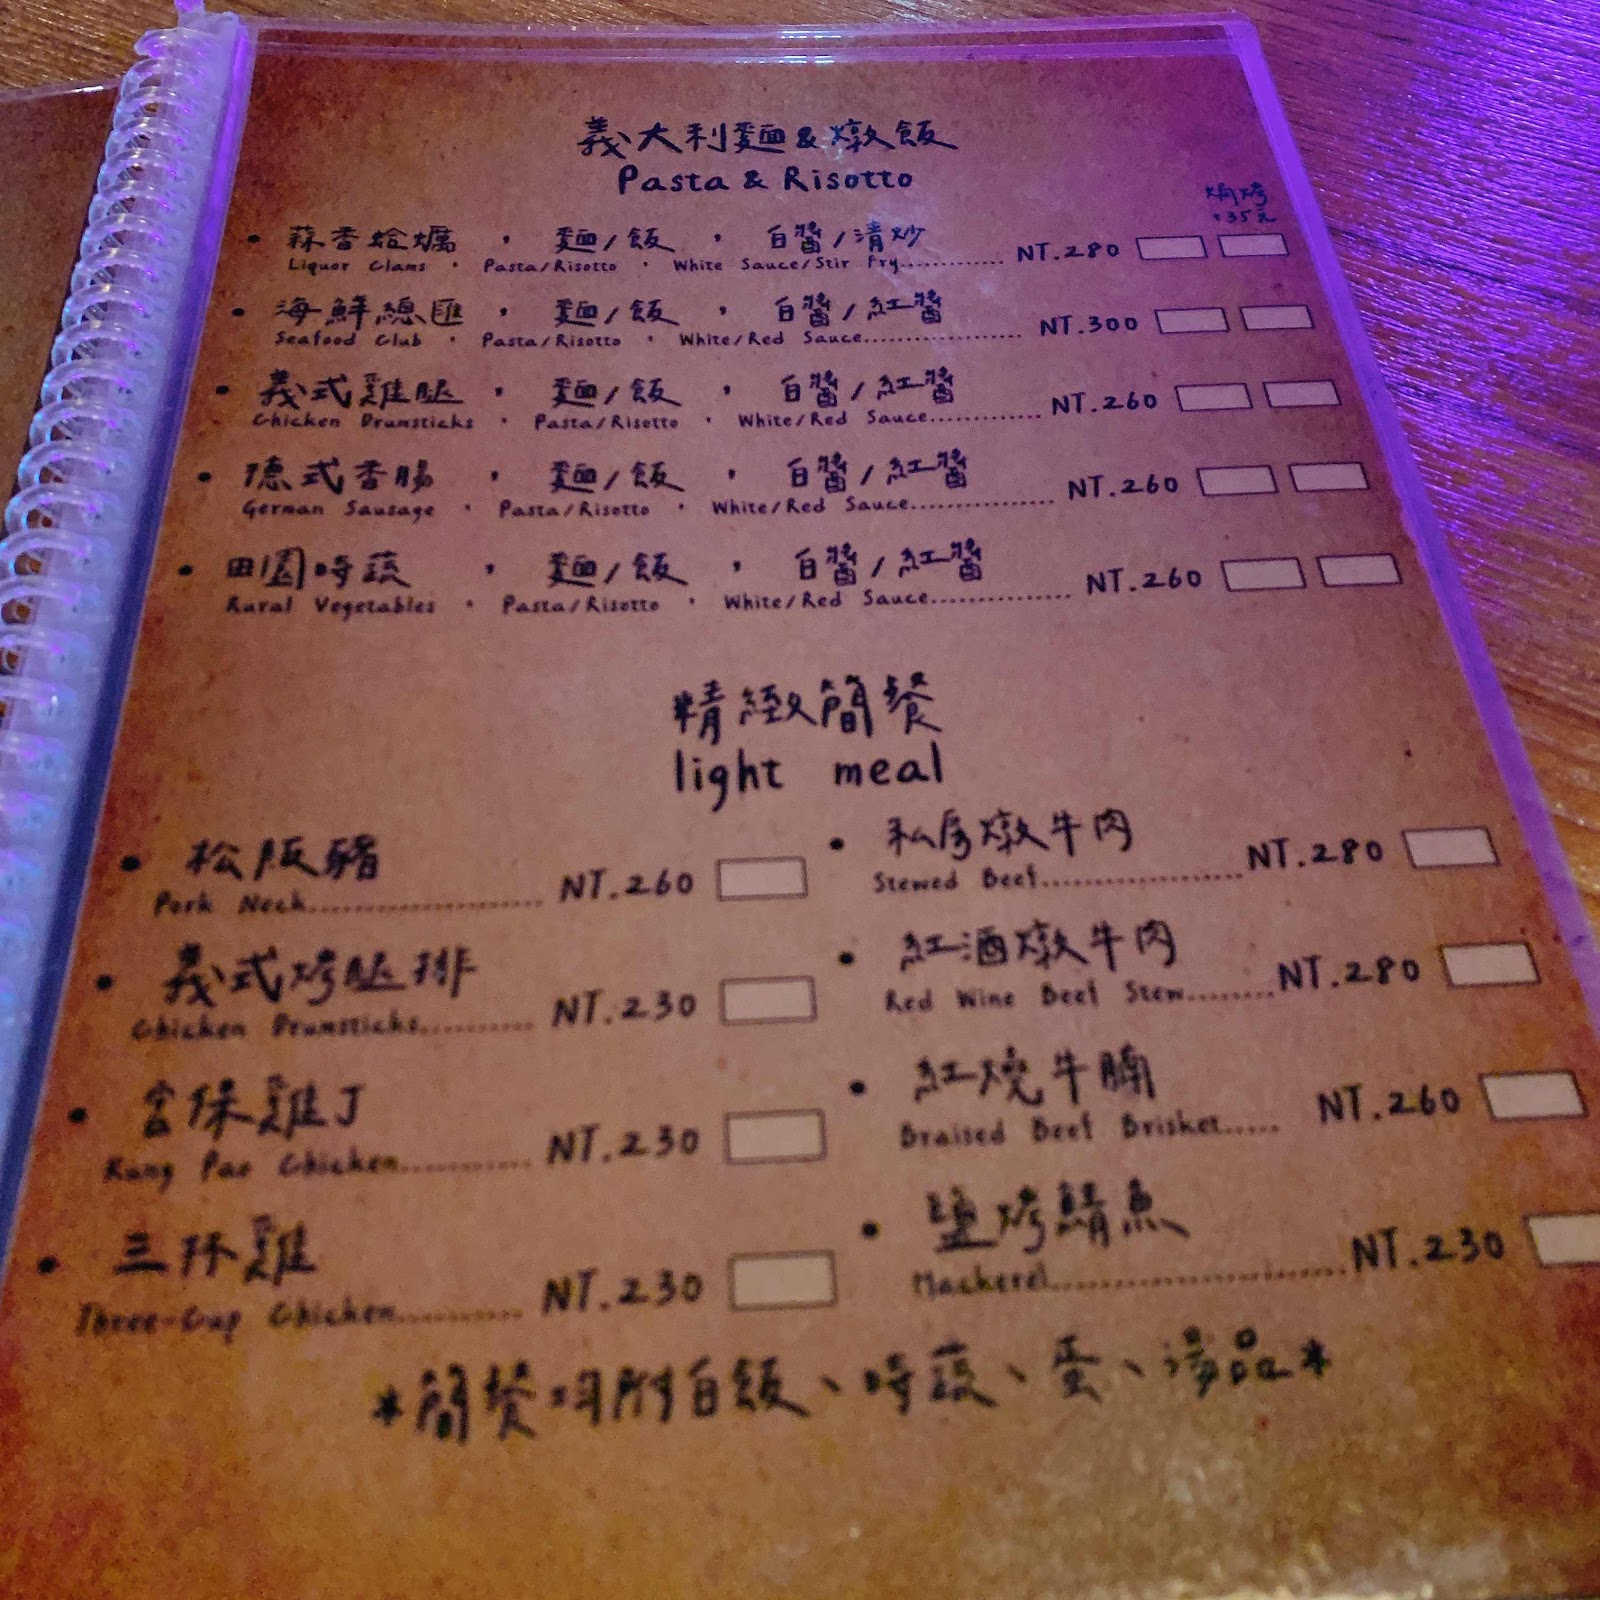 義大利麵&燉飯
Pasta & Risotto
焗烤
+35元
• 蒜香蛤蠣 , 麵/飯 , 白醬/清炒 NT.280
Liquor Clams , Pasta/Risotto , White Sauce/Stir Fry.............
• 海鮮總匯 , 麵/飯 , 白醬/紅醬 NT.300
Seafood Club , Pasta/Risotto , White/Red Sauce....................
• 義式雞腿 , 麵/飯 , 白醬/紅醬 NT.260
Chicken Drumsticks , Pasta/Risotto , White/Red Sauce.............
• 德式香腸 , 麵/飯 , 白醬/紅醬 NT.260
German Sausage , Pasta/Risotto , White/Red Sauce................
• 田園時蔬 , 麵/飯 , 白醬/紅醬 NT.260
Rural Vegetables , Pasta/Risotto , White/Red Sauce................
精緻簡餐
light meal
• 松阪豬
Pork Neck........................ NT.260
• 義式烤腿排
Chicken Drumsticks........... NT.230
• 宮保雞丁
Kung Pao Chicken............. NT.230
• 三杯雞
Three-Cup Chicken............ NT.230
• 私房燉牛肉
Stewed Beef....................NT.280
• 紅酒燉牛肉
Red Wine Beef Stew........NT.280
• 紅燒牛腩
Braised Beef Brisket..... NT.260
• 鹽烤鯖魚
Mackerel...........................NT.230
*簡餐均附白飯、時蔬、蛋、湯品*